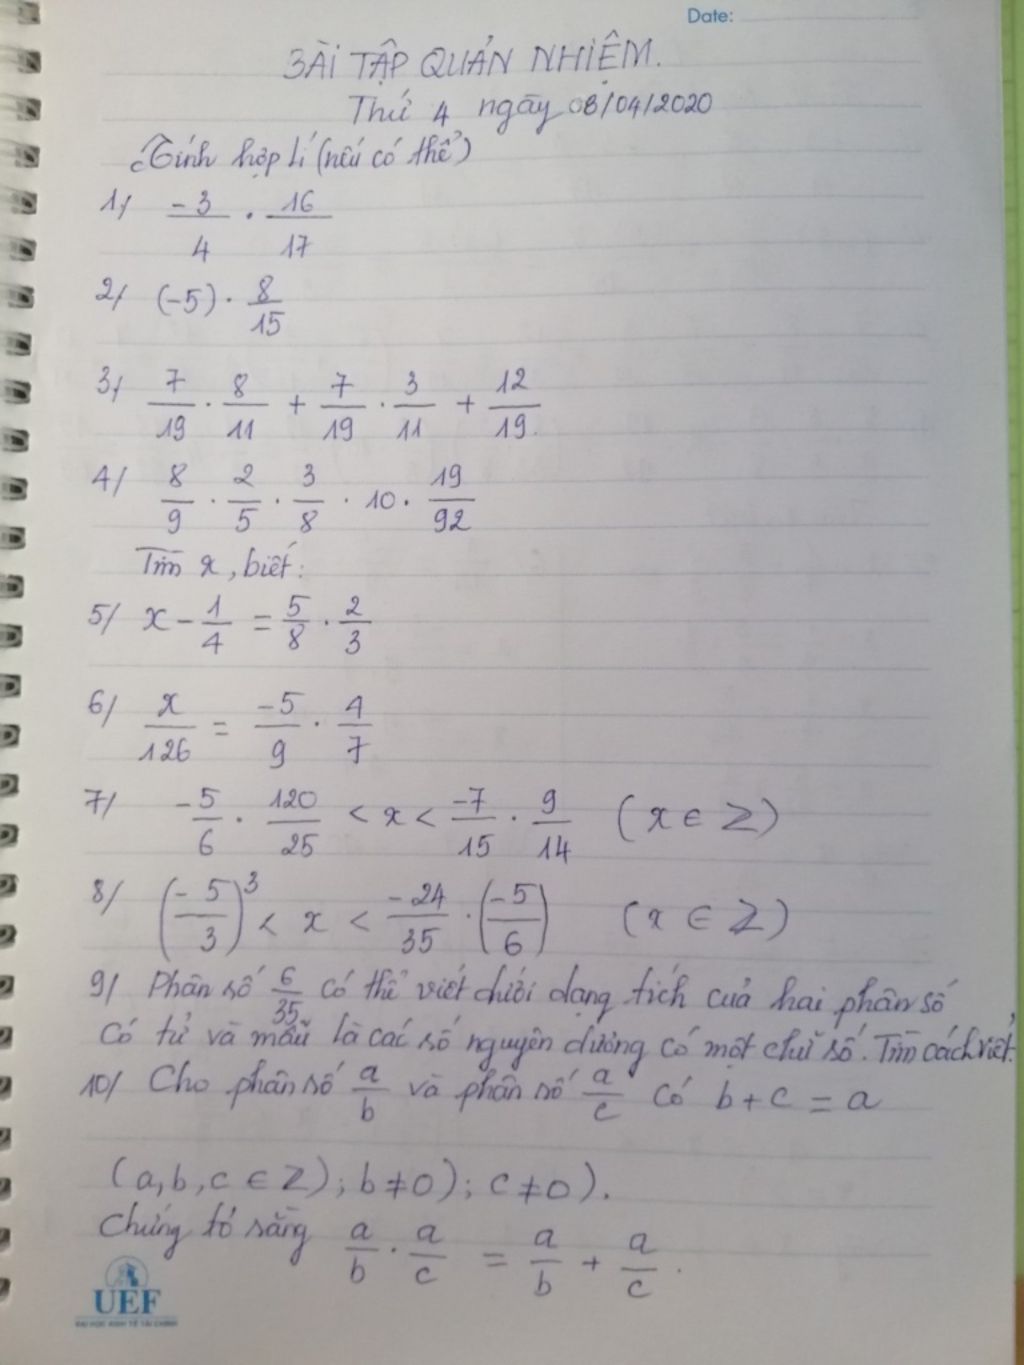 Date:
BÀI TẬP QUẢN NHIỆM.
Thứ 4 ngày 08/04/2020
Tính hợp lí (nếu có thể)
1/ -3/4 . 16/17
2/ (-5) . 8/15
3/ 7/19 . 8/11 + 7/19 . 3/11 + 12/19
4/ 8/9 . 2/5 . 3/8 . 10 . 19/92
Tìm x, biết:
5/ x - 1/4 = 5/8 . 2/3
6/ x/126 = -5/9 . 4/7
7/ -5/6 . 120/25 < x < -7/15 . 9/14 (x ∈ Z)
8/ (-5/3)³ < x < -24/35 . (-5/6) (x ∈ Z)
9/ Phân số 6/35 có thể viết dưới dạng tích của hai phân số
có tử và mẫu là các số nguyên dương có một chữ số. Tìm cách viết.
10/ Cho phân số a/b và phân số a/c có b + c = a
(a, b, c ∈ Z); b ≠ 0); c ≠ 0).
Chứng tỏ rằng a/b . a/c = a/b + a/c.
UEF
ĐẠI HỌC KINH TẾ TÀI CHÍNH